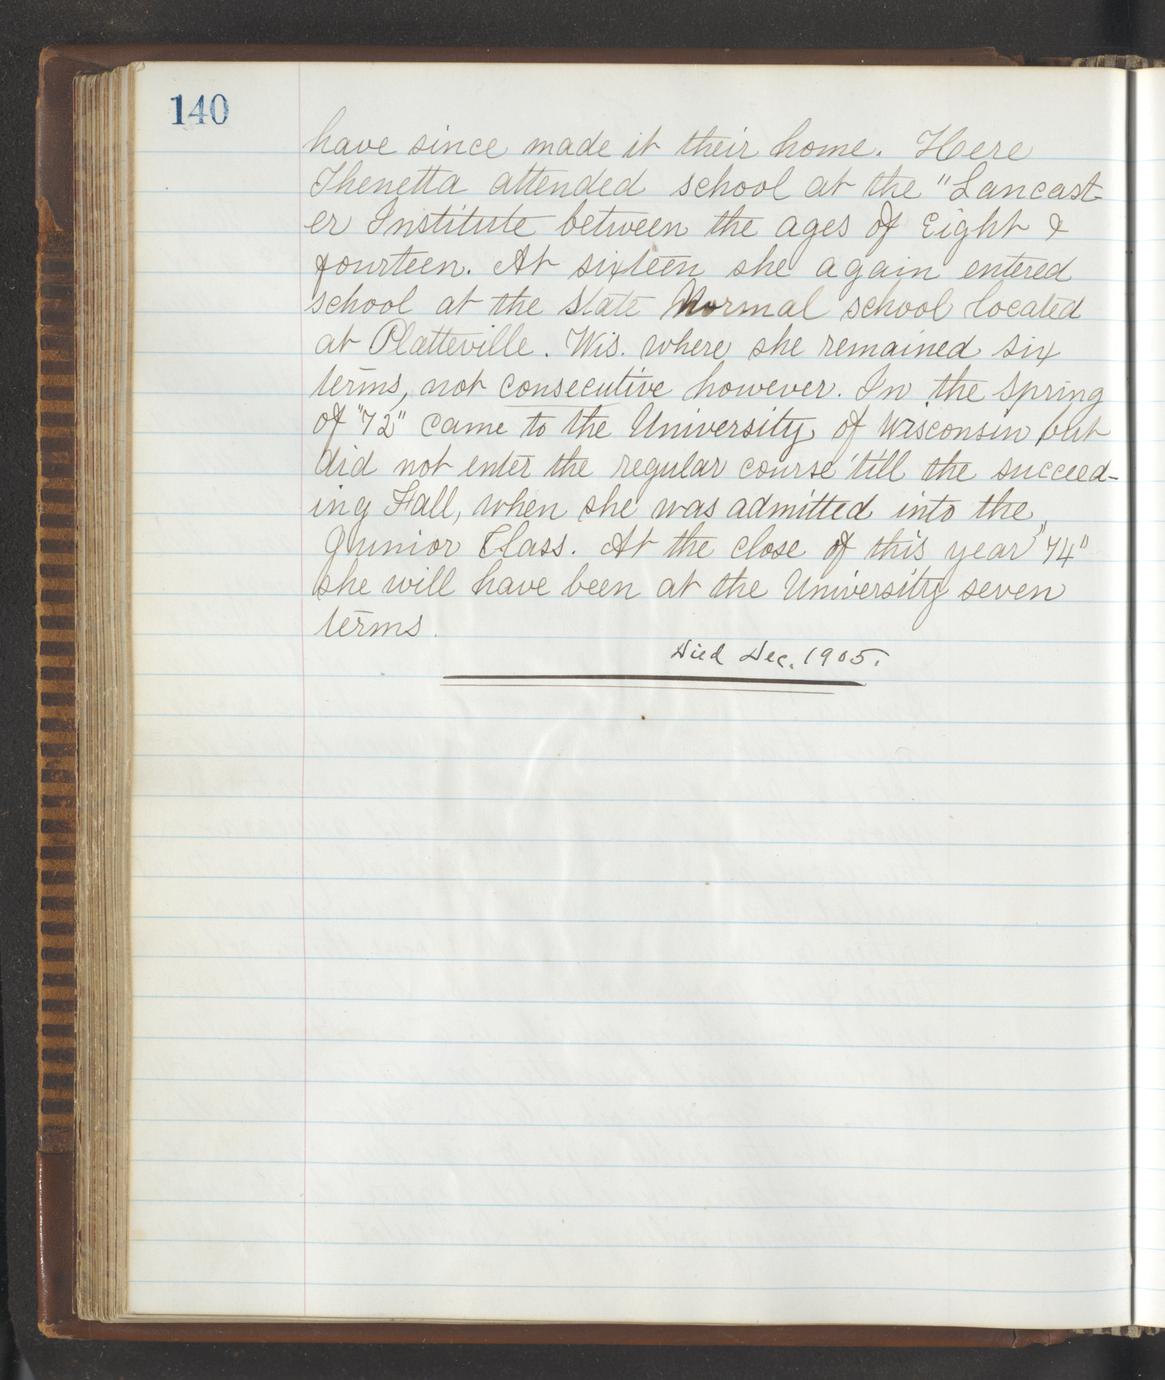 140
have since made it their home. Here
Thenetta attended school at the "Lancast-
er Institute between the ages of Eight &
fourteen. At sixteen she again entered
school at the State Normal school located
at Platteville. Wis. where she remained six
terms, not consecutive however. In the Spring
of "72" came to the University of Wisconsin but
did not enter the regular course 'till the succeed-
ing Fall, when she was admitted into the
Junior Class. At the close of this year "74"
she will have been at the University seven
terms.
Died Dec. 1905.